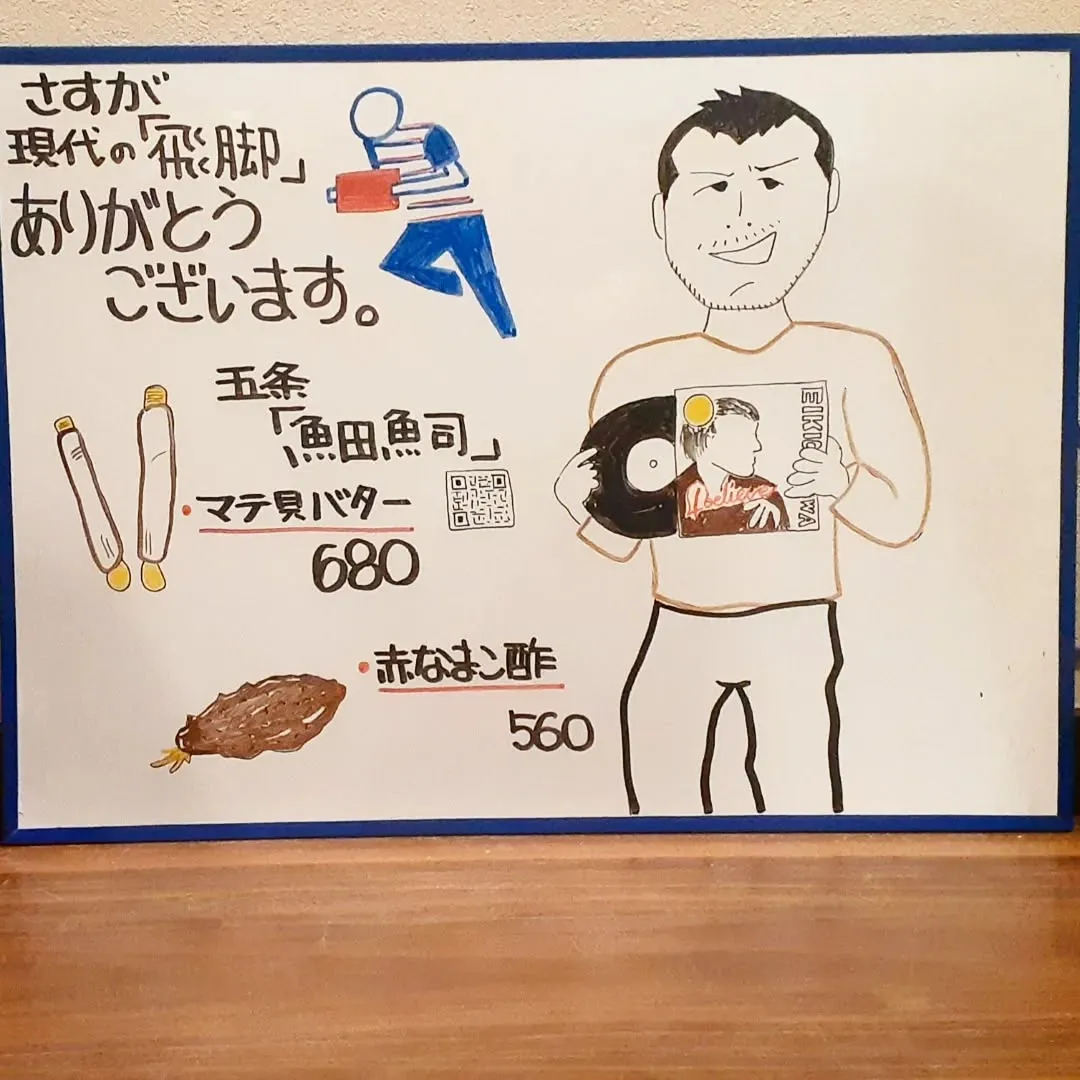 さすが
現代の「飛脚」
ありがとう
ございます。
五条
「魚田魚司」
・マテ貝バター
680
・赤なまこ酢
560
Believe